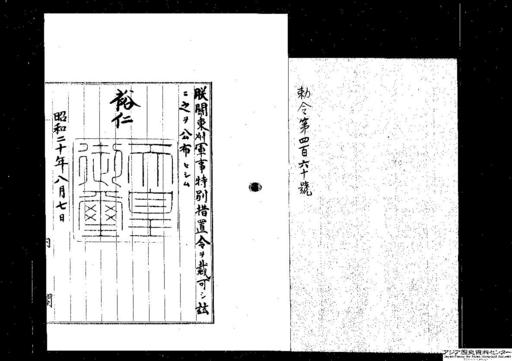 勅令第四百六十號
朕關東州軍事特別措置令ヲ裁可シ玆
ニ之ヲ公布セシム
裕仁
天皇
御璽
昭和二十年八月七日
内閣
アジア歴史資料センター